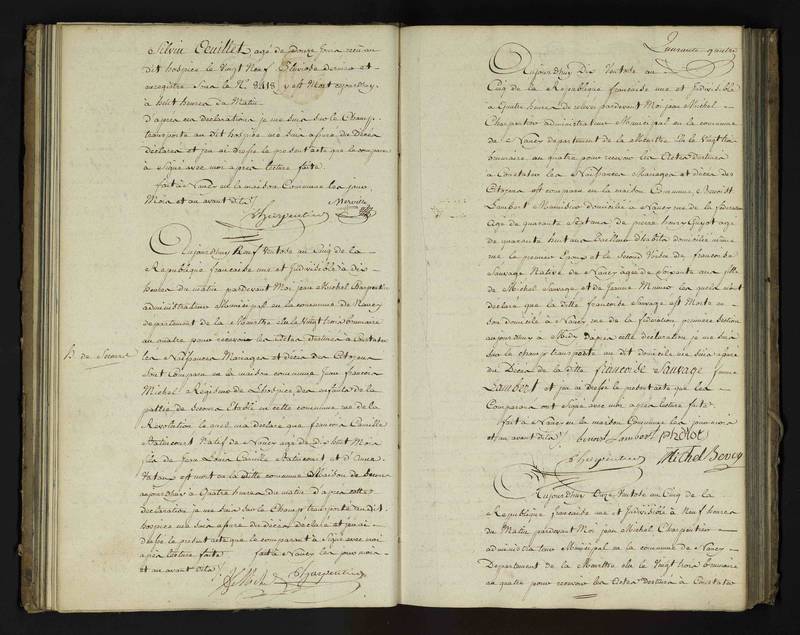 Silvin Oeuillet agé de Douze jours reçu au
dit hospice le Vingt Neuf Pluviose dernier et
enregistré sous le N.º 8418 y est Mort aujourdhuy
à huit heures du Matin
d'apres cette declaration je me suis sur le Champ
transporté au dit hospice me suis assuré du Décès
déclaré et j'en ai dressé le present acte que le comparant
à Signé avec moi après lecture faite.
fait à Nancy en la maison Commune les jour
Mois et an avant dits
Charpentier
Aujourdhuy Neuf Ventose au Cinq de la
République française une et Indivisible à dix
heures du matin pardevant Moi jean Michel Charpentier
administrateur Municipal en la commune de Nancy
departement de la Meurthe élu le Vingt trois brumaire
an quatre pour recevoir les Actes destinés à Constater
B. de Secours
les Naissances Mariages et décès des Citoyens
Est Comparu en la maison commune jean francois
Michel Régisseur de l'hospice des enfants de la
patrie de secours établi en cette commune rue de la
Revolution le quel m'a declaré que francois Camille
natif de Nancy agé de Dix huit Mois
fils de Camille et d'Anne
est mort en la ditte commune Maison de Secours
aujourdhuy à Quatre heures du matin d'après cette
declaration je me suis sur le Champ transporté au dit
hospice me suis assuré du décès déclaré et j'en ai
dressé le present acte que le comparant à Signé avec moi
après lecture faite fait à Nancy les jour mois
et an avant dits
Charpentier
Quarante quatre
Aujourdhuy Dix Ventose au
Cinq de la République française une et Indivisible
à Quatre heures de relevée pardevant Moi jean Michel
Charpentier administrateur Municipal en la commune
de Nancy departement de la Meurthe élu le Vingt trois
brumaire an quatre pour recevoir les Actes destinés
à Constater les Naissances Mariages et décès des
Citoyens est comparu en la maison Commune, Benoist
Lambert domicilié à Nancy rue de la federation
agé de quarante Sept ans de pierre henry agé
de quarante huit ans Tailleur d'habits domicilié même
rue le premier Epoux et le Second Voisin de francoise
Sauvage Native de Nancy agée de Soixante ans fille
de Michel Sauvage et de Jeanne les quels m'ont
declaré que la ditte francoise Sauvage est Morte en
son domicile à Nancy rue de la federation premiere Section
aujourdhuy à Midy d'apres cette declaration je me suis
sur le champ transporté au dit domicile me suis assuré
du Décès de la ditte francoise Sauvage femme
Lambert et j'en ai dressé le present acte que les
Comparants ont Signé avec moi après lecture faite.
fait à Nancy en la maison Commune les jour mois
et an avant dits benoit Lambert
Charpentier Michel
Aujourdhuy Onze Ventose au Cinq de la
République française une et Indivisible à Neuf heures
du Matin pardevant Moi jean Michel Charpentier
administrateur Municipal en la commune de Nancy
Departement de la Meurthe élu le Vingt trois brumaire
an quatre pour recevoir les Actes destinés à Constater